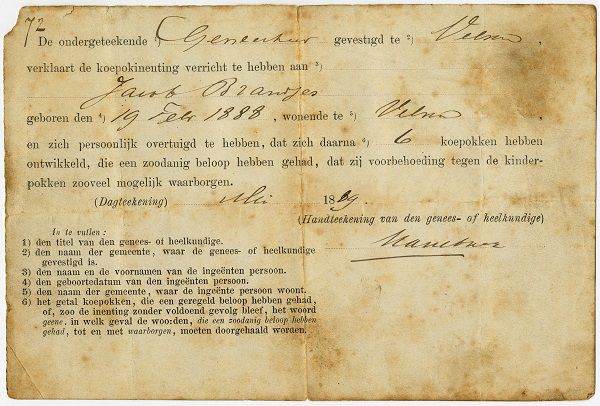 72
De ondergeteekende 1) Geneesheer gevestigd te 2) Velsen,
verklaart de koepokinenting verricht te hebben aan 3)
Jacob Brandjes
geboren den 4) 19 Febr 1888, wonende te 5) Velsen
en zich persoonlijk overtuigd te hebben, dat zich daarna 6) 6 koepokken hebben
ontwikkeld, die een zoodanig beloop hebben gehad, dat zij voorbehoeding tegen de kinder-
pokken zooveel mogelijk waarborgen.
(Dagteekening) Mei 1889.
(Handteekening van den genees- of heelkundige)
In te vullen:
1) den titel van den genees- of heelkundige.
2) den naam der gemeente, waar de genees- of heelkundige
gevestigd is.
3) den naam en de voornamen van de ingeënten persoon.
4) den geboortedatum van den ingeënten persoon.
5) den naam der gemeente, waar de ingeënte persoon woont.
6) het getal koepokken, die een geregeld beloop hebben gehad,
of, zoo de inenting zonder voldoend gevolg bleef, het woord
geene, in welk geval de woorden, die een zoodanig beloop hebben
gehad, tot en met waarborgen, moeten doorgehaald worden.